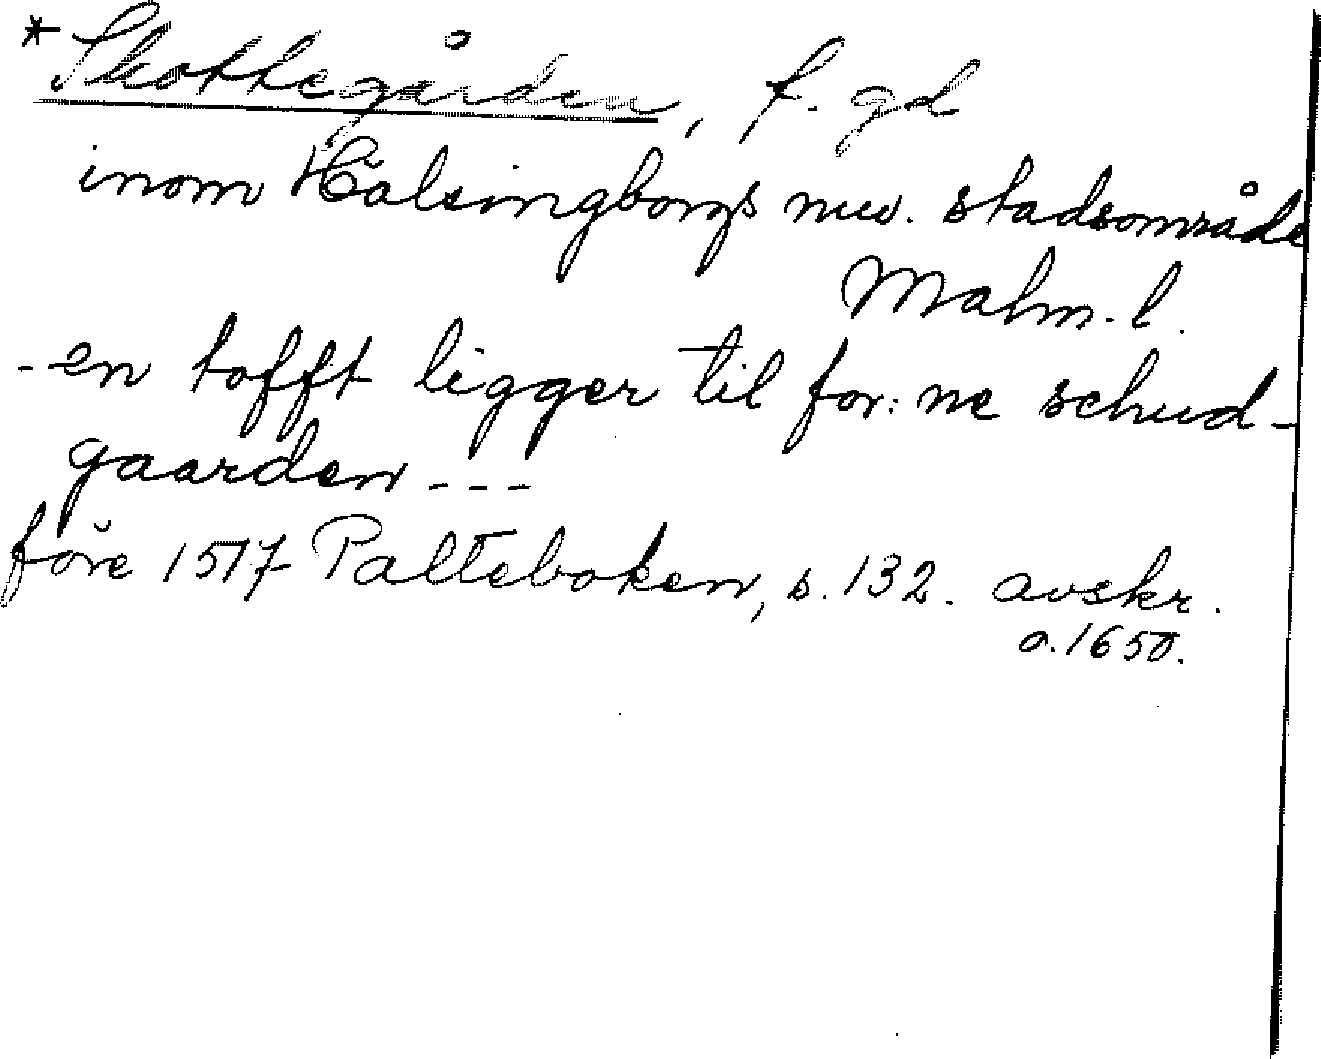 *Skottegården, f. gd
inom Hälsingborgs nuv. stadsområde
Malm. l.
- en tofft ligger til for: ne schud-
gaarden - - -
före 1517 Palteboken, s. 132. avskr.
o. 1650.